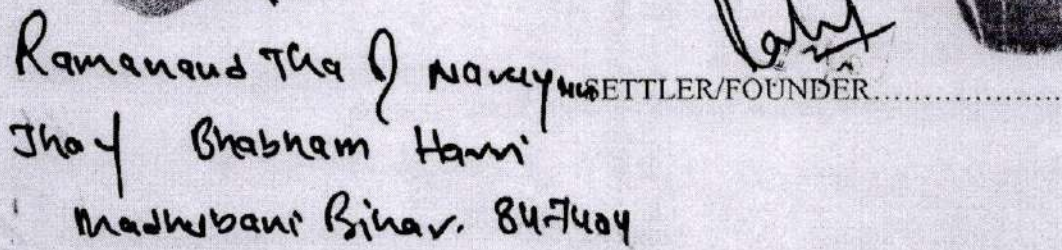 Ramanand Jha S/o Narayan SETTLER/FOUNDER....................
Jha Bhabham Harri
Madhubani Bihar. 847404